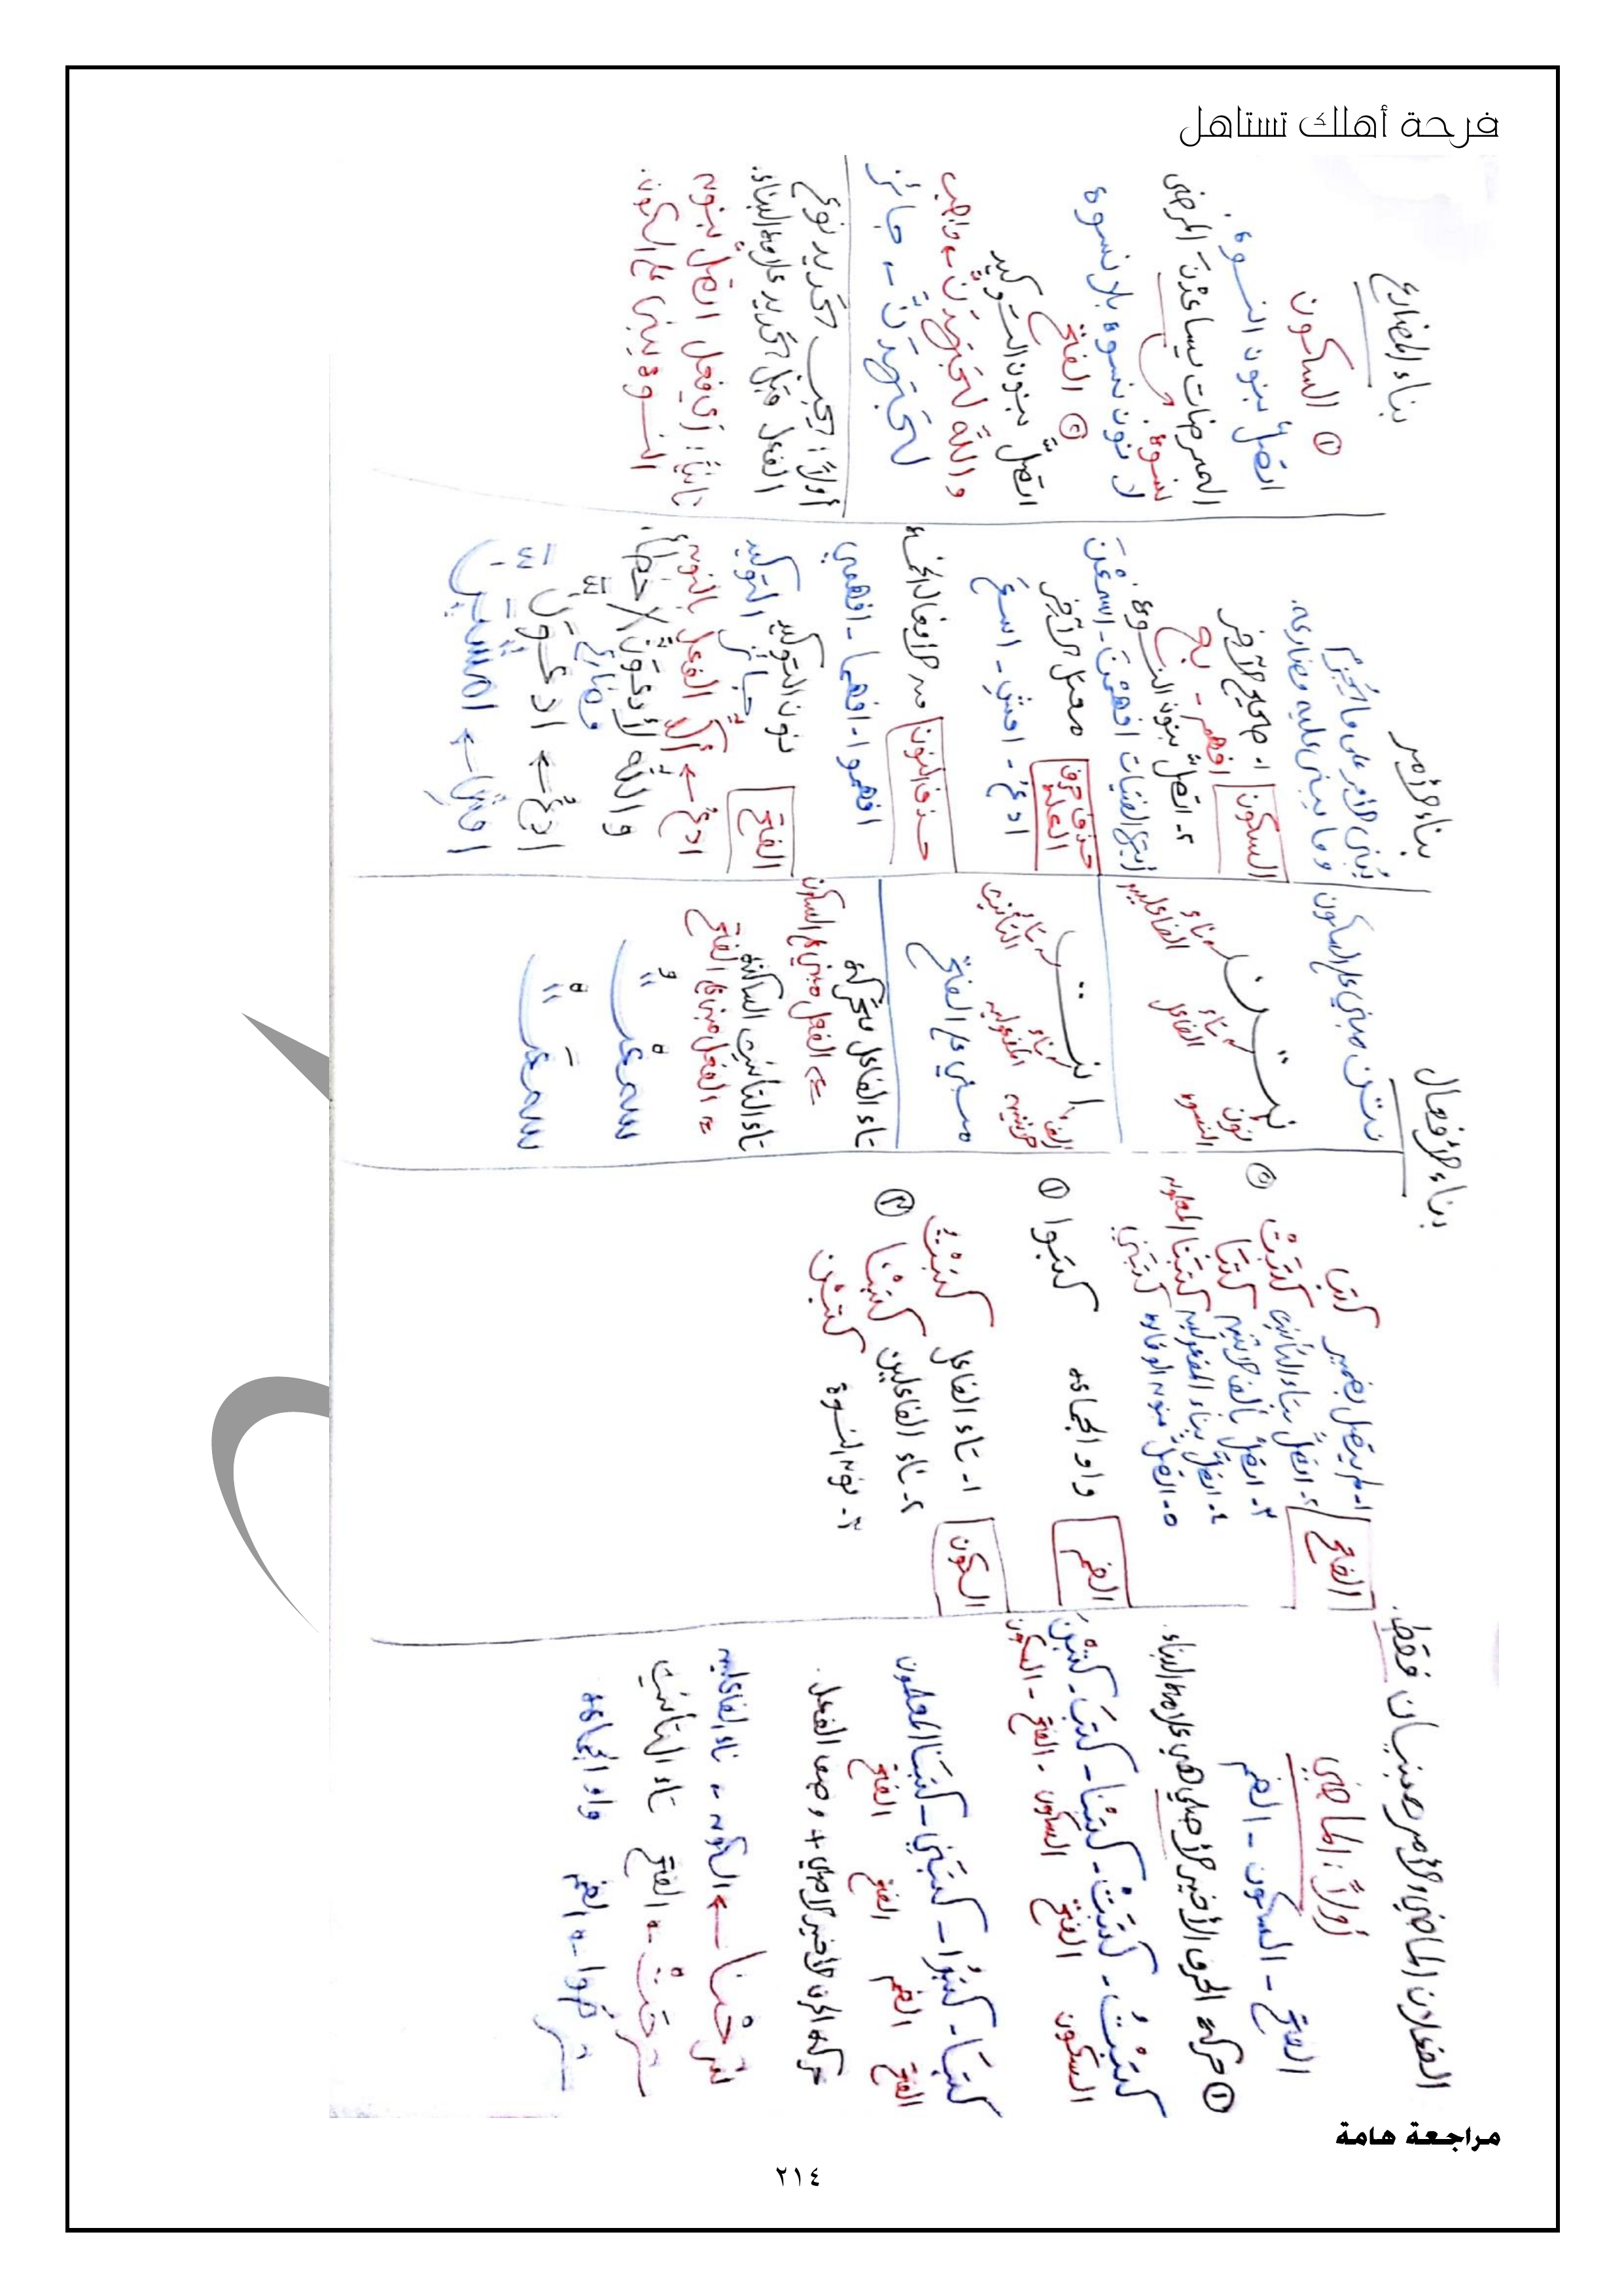 فرحة أهلك تستاهل
الفعلان الماضي والأمر مبنيان فقط.
أولاً: الماضي
الفتح - السكون - الضم
① حركة الحرف الأخير الأصلي هي علامة البناء.
كتبْتُ - كتبَتْ - كتبْنا - كتبَ - كتبْنَ
السكون الفتح السكون - الفتح - السكون
كتبَا - كتبُوا - كتبَني - كتبَنا المعلمون
الفتح الضم الفتح الفتح
حركة الحرف الأخير الأصلي + وصف الفعل.
شرحْنا ← السكون ← ناء الفاعلين
شرحَتْ ← الفتح تاء التأنيث
شرحُوا ← الضم واو الجماعة
بناء الأفعال
الفتح
١- لم يتصل بضمير كتبَ
٢- اتصل بتاء التأنيث كتبَتْ
٣- اتصل بألف الاثنين كتبَا
٤- اتصل بناء المفعولين كتبَنا المعلمون
٥- اتصل بنون الوقاية كتبَني
⑤
الضم
واو الجماعة كتبُوا ①
السكون
١- تاء الفاعل كتبْتُ
٢- ناء الفاعلين كتبْنا
٣- نون النسوة كتبْن
③
نتن مبني على السكون
نـتـن
نون النسوة
تاء الفاعل
ناء الفاعلين
ا نـت
ألف الاثنين
ناء المفعولين
تاء التأنيث
مبني على الفتح
تاء الفاعل متحركة
الفعل مبني على السكون
تاء التأنيث الساكنة
الفعل مبني على الفتح
سمعْتُ
سمعَتْ
بناء الأمر
يُبنى الأمر على ما يُجزم
وما يبنى عليه مضارعه.
السكون
١- صحيح الآخر
افهم - بح
٢- اتصل بنون النسوة
أيتها الفتيات افهمْنَ - اسمعْنَ
حذف حرف العلة
معتل الآخر
ادعُ - امشِ - اسعَ
حذف النون
من الأفعال الخمسة
افهموا - افهما - افهمي
الفتح
نون التوكيد
جائز التوكيد
ادعُ ← ألا الفعل بالنون
والله لأدعوَنَّ / خطأ.
مضارع
ادعُ ← ادعوَنَّ
امشِ ← امشيَنَّ
بناء المضارع
① السكون
اتصل بنون النسوة.
الممرضات يساعدْنَ المرضى
نسوة
لا نون نسوة بلا نسوة
② الفتح
اتصل بنون التوكيد
والله لتجتهدَنَّ ← واجب
لتجتهدَنَّ ← جائز
أولاً: يجب تحديد نوع
الفعل قبل تحديد علامة البناء.
ثانياً: أي فعل اتصل بنون
النسوة يبنى على السكون.
مراجعة هامة
٢١٤